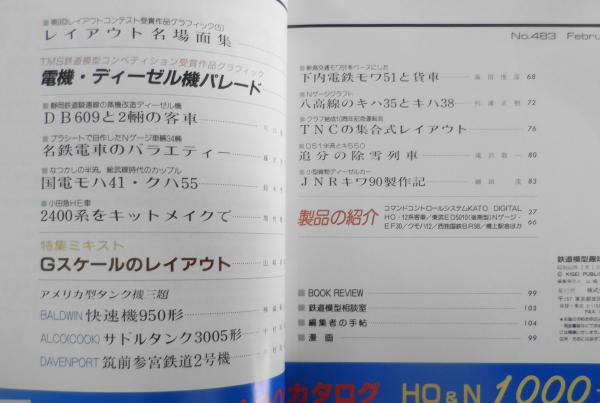 ■第9回レイアウトコンテスト受賞作品グラフィック(5)
レイアウト名場面集
TMS鉄道模型コンペティション受賞作品グラフィック
電機・ディーゼル機パレード
■静岡鉄道駿遠線の蒸機改造ディーゼル機
DB609と2輛の客車
■プラシートで自作したNゲージ車輛34輛
名鉄電車のバラエティー
■なつかしの半流、総武線時代のカップル
国電モハ41・クハ55
■小田急HE車
2400系をキットメイクで
特集ミキスト
Gスケールのレイアウト
アメリカ型タンク機三題
BALDWIN 快速機950形
ALCO(COOK) サドルタンク3005形
DAVENPORT 筑前参宮鉄道2号機
No.483 Februa
■新潟交通モワ51をベースにした
下内電鉄モワ51と貨車 68
■Nゲージクラフト
八高線のキハ35とキハ38 72
■クラブ結成10周年記念運転会
TNCの集合式レイアウト 76
■D51半流とキ550
追分の除雪列車 80
■小型貨物ディーゼルカー
JNRキワ90製作記 83
製品の紹介
コマンドコントロールシステムKATO DIGITAL 27
HO・12系客車/東武ED5010(後期型)Nゲージ・
EF30/クモハ12/西独国鉄BR98/橋上駅舎ほか 66
■BOOK REVIEW 99
■鉄道模型相談室 103
■編集者の手帖 104
■漫画 99
鉄道模型趣味
© KIGEI PUBLI
カタログ HO&N 1000